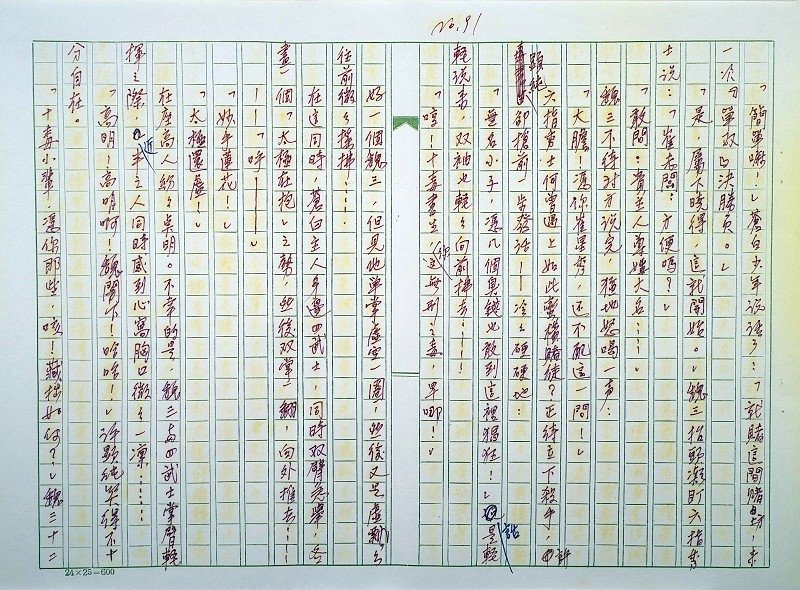 No. 91
「簡單嘛!」蒼白少年說話了:「就賭這間賭場,來
一次『單叔』決勝負。」
「是,屬下曉得,這就開始。」魏三抬頭凝盯六指書
士說:「崔老闆:方便嗎?」
「敢問:貴主人尊姓大名……」
魏三不待對方說完,猛地怒喝一聲:
「大膽!憑你崔星秀,還不配這一問!」
六指秀士何嘗遇上如此蠻橫賭徒?正待立下殺手,許
顯純卻搶前一步發話——冷冷硬硬地:
「無名小子,憑幾個臭錢也敢到這裡猖狂!」話是輕
輕說來,双袖也輕輕向前拂去……
「哼!十毒書生,你這無形之毒,早哪!」
好一個魏三,但見他單掌虛空一圈,然後又是虛飄飄
往前微微揮拂……
在這同時,蒼白主人身邊四武士,同時双臂急舉,各
畫一個「太極在抱」之勢,然後双掌一翻,向外推去……
——「呼————」
「妙手蓮花!」
「太極還虛!」
在座高人紛紛卓明。不幸的是,魏三與四武士掌臂輕
揮之際,近半之人同時感到心窩胸口微微一凜……
「高明!高明啊!魏閣下!哈哈!」許顯純笑得不十
分自在。
「十毒小輩,憑你那些,咳!藏掖如何?」魏三十二
24×25=600